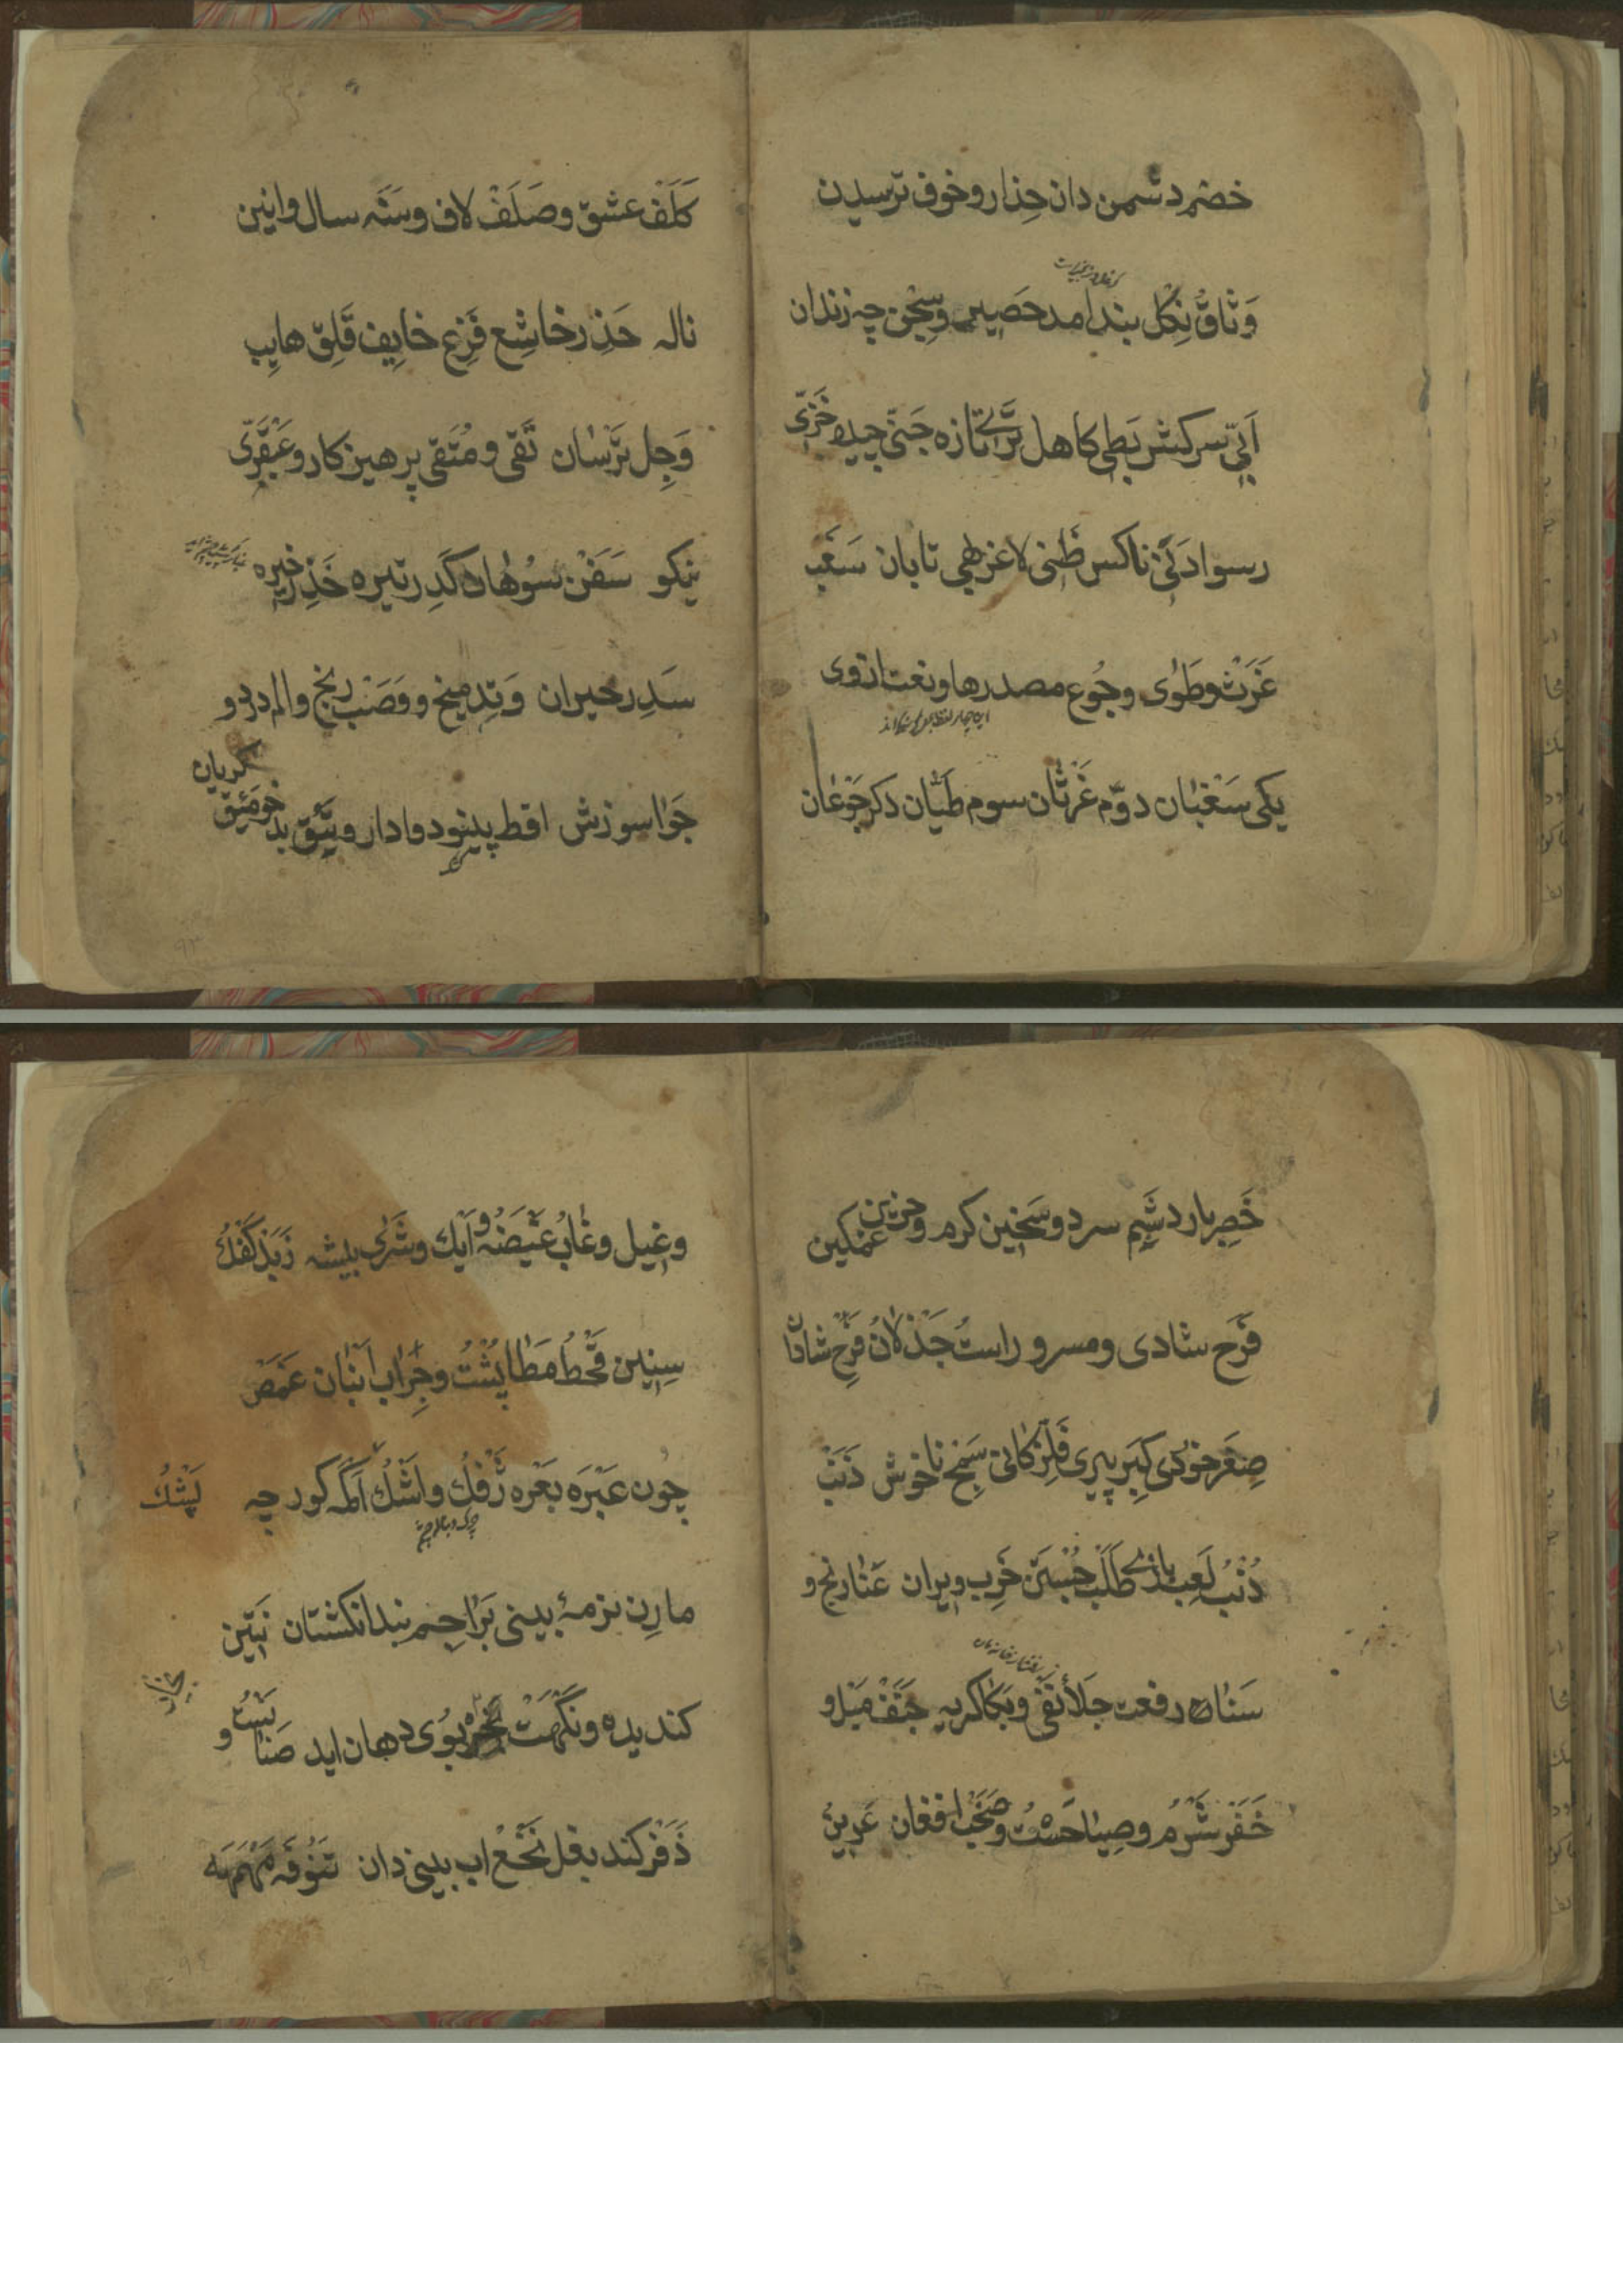 خصم دشمن دان حِذار و خوف ترسیدن
وَثاقُ نِکل بند امد حَصیر و سِجْن چه زندان
اَبِیّ سرکش بَطِی کاهل ثَرِیّ تازه جَنیّ چیده خَزِیّ
رسوا دَنیّ ناکس ظَنی لاغر بَهی تابان سَغَب
غَرَثْ و طَوٰی و جُوع مصدرها و نعت از وی
این چهار لفظ
یکی سَغْبٰان دوّم غَرثٰان سوم طَیّان دکر جَوْعٰان
کَلَفْ عشق و صَلَفْ لاف و سَنَه سال و انین
ناله حَذِر خاشِع فَزِع خایِف قَلِق هایِب
وَجِل تَرْسٰان تَقی و مُتَّقی پرهیزکار و عَبْقَرّی
نیکو سَفَنْ سُوهان کَدِر تیره خَذِر خیره
سَدِر حیران وَتِد میخ و وَصَبْ رنج و الم درد و
جَوٰا سوزش اقط پینو دوا دارو و یَئِق بدخو مَئِق
کریان
٩٣
خَصِر بارد شَبِم سرد و سَخین کرم و حزین غمکین
فَرَح شادی و مسرور است جَذْلانُ فَرِح شادٰان
صِغَر خوُردی کِبَر پیری فِلِز کانی سَمِج ناخوش ذَنَبْ
دُنْبْ لَعِب بازے طَلَبْ جُسْتَن خَرِب ویران عَنٰا رنج و
سَنٰا رفعت جلاٰ نفی و بُکا کریه جَنَفْ مَیْل و
خَفَر شَرْم و صِیٰاحَسْتُ و صَخَب افغان عَرینُ
و غِیل و غٰابُ غَیْضَهُ و اَیْک و شَرٰی بیشه زَبَد کَفْکُ
سِنین قَحْطُ مَطٰا پُشْتُ و جِرٰاب اَنْبٰان غَمَصْ
چُون عَبْرَه بَعْره رَفْکُ و اَشْک اَکْمَه کور چه پِشْکُ
مارِن نرمهٔ بینی بَرٰاجِم بندانکشتان نَتِن
کندیده و نَکْهَتْ بَخَر بُوی دهان اید صَنٰا و
ذَفَر کند بغل نُخْع اب بینی دان تَنُوفَه مَهْمَه
٩٤